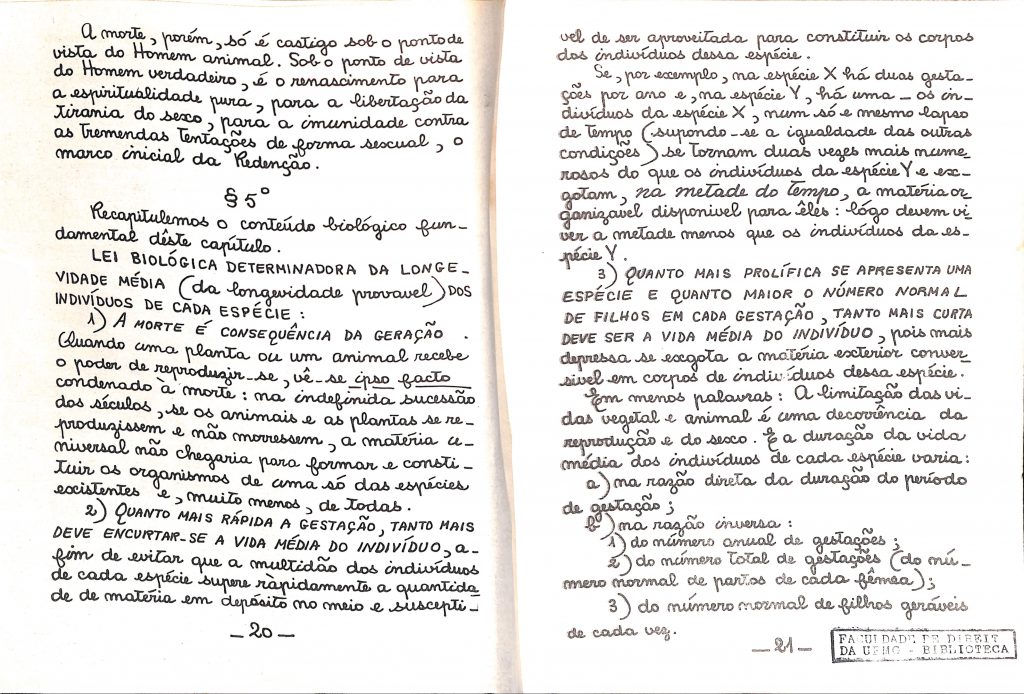 A morte, porém, só é castigo sob o ponto de
vista do Homem animal. Sob o ponto de vista
do Homem verdadeiro, é o renascimento para
a espiritualidade pura, para a libertação da
tirania do sexo, para a imunidade contra
as tremendas tentações de forma sexual, o
marco inicial da Redenção.
§ 5º
Recapitulemos o conteúdo biológico fun-
damental dêste capítulo.
LEI BIOLÓGICA DETERMINADORA DA LONGE-
VIDADE MÉDIA (da longevidade provavel) DOS
INDIVÍDUOS DE CADA ESPÉCIE:
1) A MORTE É CONSEQUÊNCIA DA GERAÇÃO.
Quando uma planta ou um animal recebe
o poder de reproduzir-se, vê-se ipso facto
condenado à morte: na indefinida sucessão
dos séculos, se os animais e as plantas se re-
produzissem e não morressem, a matéria u-
niversal não chegaria para formar e consti-
tuir os organismos de uma só das espécies
existentes e, muito menos, de todas.
2) QUANTO MAIS RÁPIDA A GESTAÇÃO, TANTO MAIS
DEVE ENCURTAR-SE A VIDA MÉDIA DO INDIVÍDUO, a-
fim de evitar que a multidão dos indivíduos
de cada espécie supere ràpidamente a quantida
de de matéria em depósito no meio e suscepti-
-20-
vel de ser aproveitada para constituir os corpos
dos indivíduos dessa espécie.
Se, por exemplo, na espécie X há duas gesta-
ções por ano e, na espécie Y, há uma - os in-
divíduos da espécie X, num só e mesmo lapso
de tempo (supondo-se a igualdade das outras
condições) se tornam duas vezes mais nume-
rosos do que os indivíduos da espécie Y e ex-
gotam, na metade do tempo, a matéria or-
ganizavel disponivel para êles: lógo devem vi-
ver a metade menos que os indivíduos da es-
pécie Y.
3) QUANTO MAIS PROLÍFICA SE APRESENTA UMA
ESPÉCIE E QUANTO MAIOR O NÚMERO NORMAL
DE FILHOS EM CADA GESTAÇÃO, TANTO MAIS CURTA
DEVE SER A VIDA MÉDIA DO INDIVÍDUO, pois mais
depressa se exgota a matéria exterior conver-
sivel em corpos de indivíduos dessa espécie.
Em menos palavras: A limitação das vi-
das vegetal e animal é uma decorrência da
reprodução e do sexo. E a duração da vida
média dos indivíduos de cada espécie varia:
a) na razão direta da duração do período
de gestação;
b) na razão inversa:
1) do número anual de gestações;
2) do número total de gestações (do nú-
mero normal de partos de cada fêmea);
3) do número normal de filhos geráveis
de cada vez.
-21-
FACULDADE DE DIREIT
DA UFMG - BIBLIOTECA